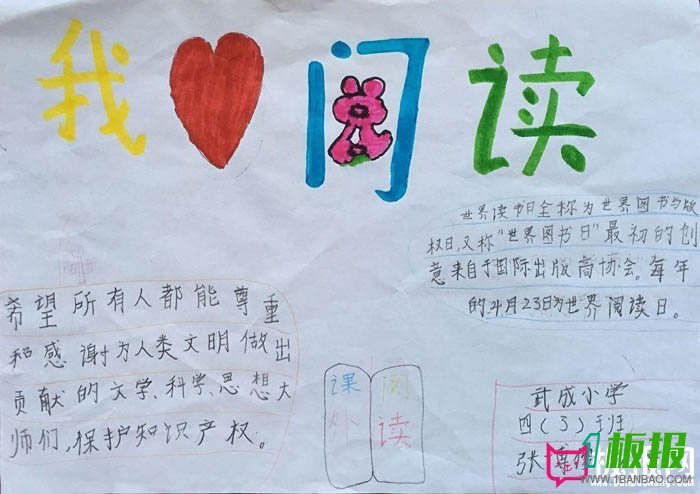 我 阅读
世界读书日全称为世界图书与版
权日,又称“世界图书日”最初的创
意来自于国际出版商协会。每年
的4月23日为世界阅读日。
希望所有人都能尊重
和感谢为人类文明做出
贡献的文学、科学、思想大
师们,保护知识产权。
课外
阅读
武成小学
四(3)班
张
1板报
WWW.1BANBAO.COM